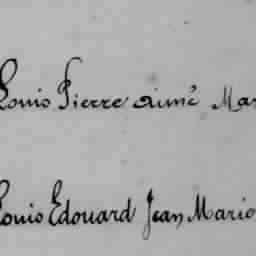 Louis Pierre Aimé Mar
Louis Edouard Jean Marie